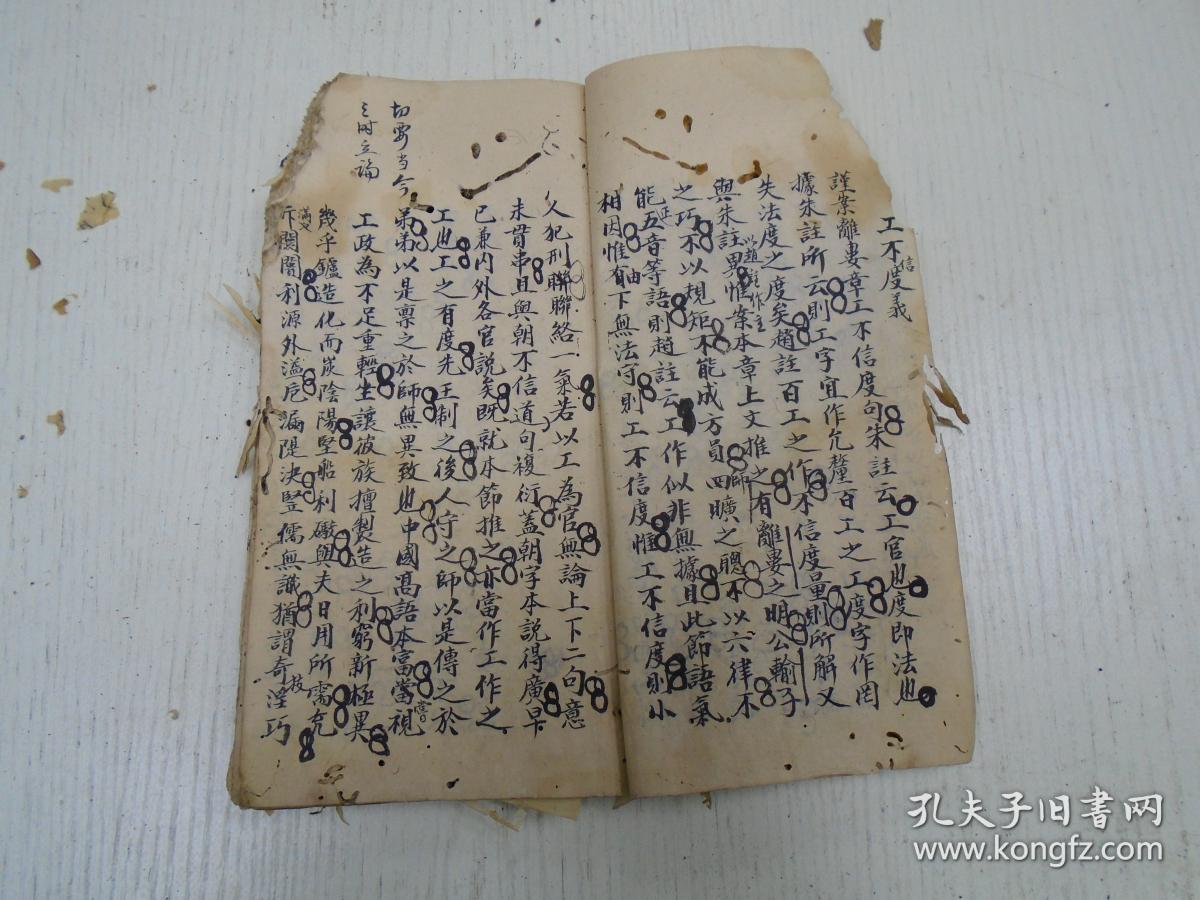 工不信度義
謹案離婁章工不信度句朱註云工官也度即法也
據朱註所云則工字宜作允釐百工之工度字作罔
失法度之度矣趙註百工之作不信度量則所解又
與朱註異惟案本章上文推之有離婁之明公輸子
以趙註作主
之巧不以規矩不能成方員師曠之聰不以六律不
能正五音等語則趙註云工作似非無據且此節語氣
相因惟下無法守則工不信度惟工不信度則小
人犯刑聯聯絡一氣若以工為官無論上下二句意
未貫串且與朝不信道句複衍蓋朝字本說得廣早
已兼內外各官說矣既就本節推之亦當作工作之
工也工之有度先王制之後人守之師以是傳之於
弟弟以是稟之於師無異致也中國高語本富當視
工政為不足重輕坐讓彼族擅製造之利窮新極異
幾乎鑪造化而炭陰陽堅船利礮與夫日用所需充
滿又
斥闤闠利源外溢卮漏隄決豎儒無識猶謂奇淫巧
技
切要当今
之时立論
孔夫子旧书网
www.kongfz.com